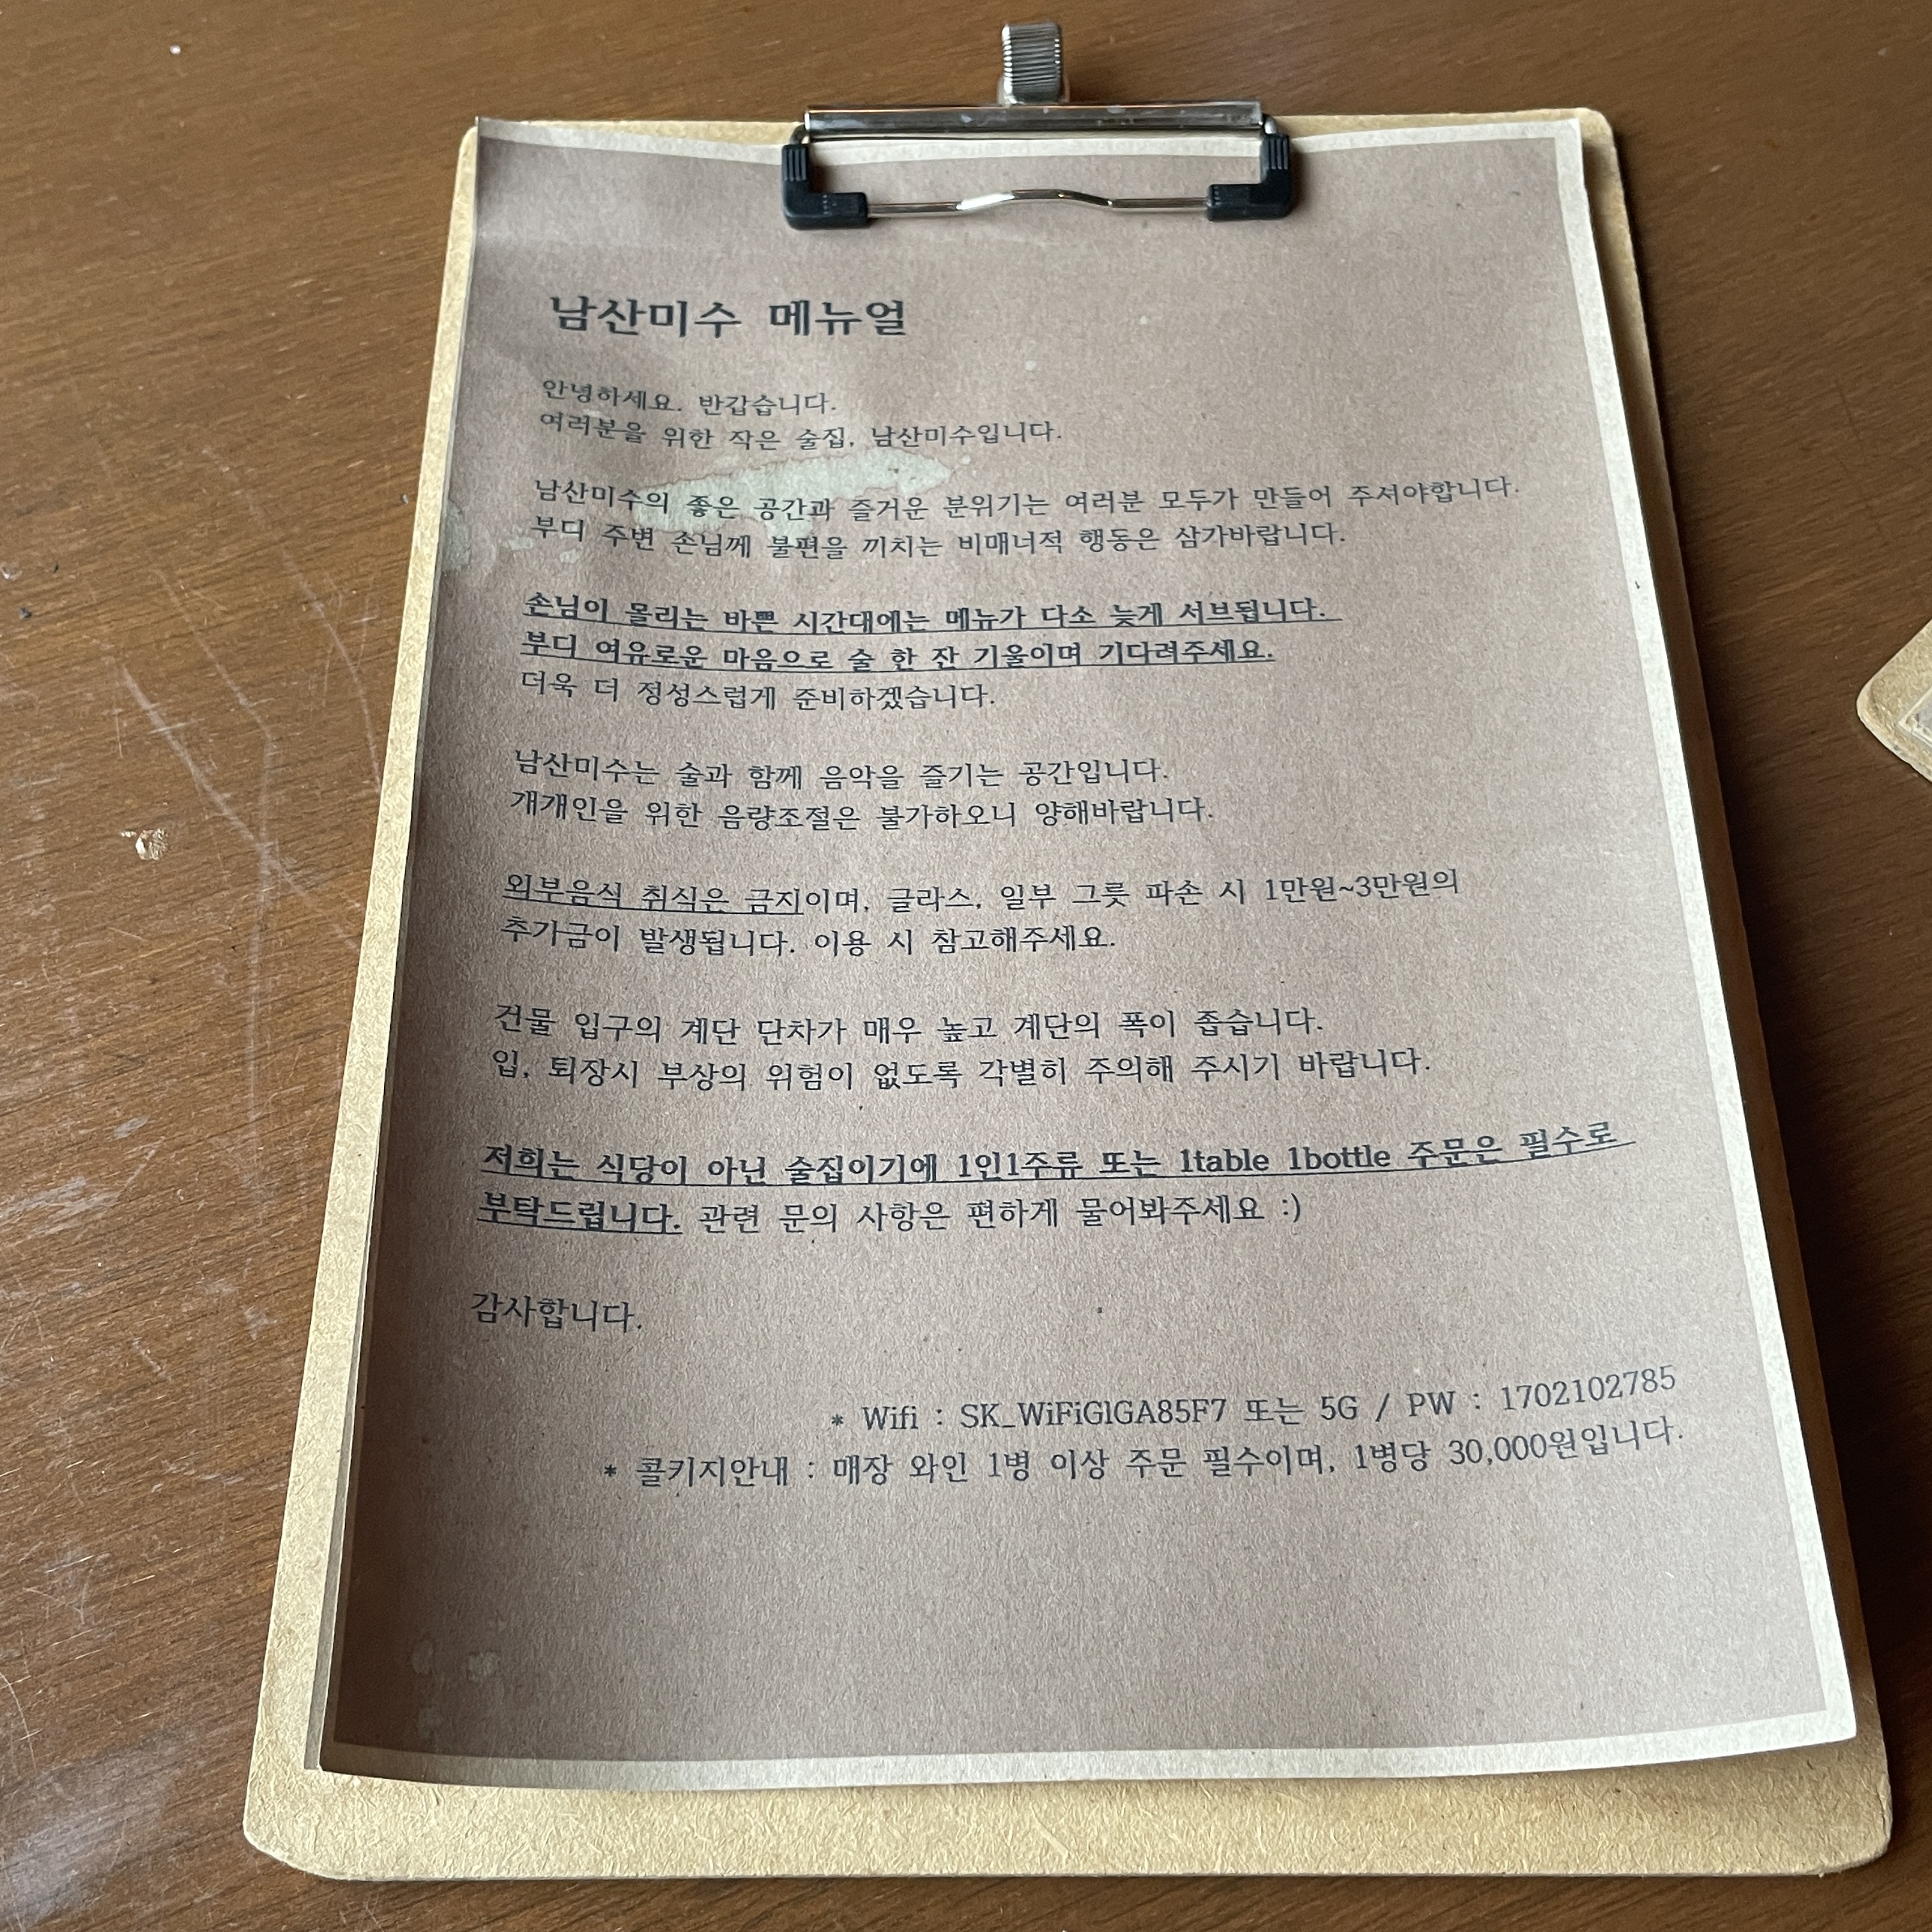 남산미수 메뉴얼
안녕하세요. 반갑습니다.
여러분을 위한 작은 술집, 남산미수입니다.
남산미수의 좋은 공간과 즐거운 분위기는 여러분 모두가 만들어 주셔야합니다.
부디 주변 손님께 불편을 끼치는 비매너적 행동은 삼가바랍니다.
손님이 몰리는 바쁜 시간대에는 메뉴가 다소 늦게 서브됩니다.
부디 여유로운 마음으로 술 한 잔 기울이며 기다려주세요.
더욱 더 정성스럽게 준비하겠습니다.
남산미수는 술과 함께 음악을 즐기는 공간입니다.
개개인을 위한 음량조절은 불가하오니 양해바랍니다.
외부음식 취식은 금지이며, 글라스, 일부 그릇 파손 시 1만원~3만원의
추가금이 발생됩니다. 이용 시 참고해주세요.
건물 입구의 계단 단차가 매우 높고 계단의 폭이 좁습니다.
입, 퇴장시 부상의 위험이 없도록 각별히 주의해 주시기 바랍니다.
저희는 식당이 아닌 술집이기에 1인1주류 또는 1table 1bottle 주문은 필수로
부탁드립니다. 관련 문의 사항은 편하게 물어봐주세요 :)
감사합니다.
* Wifi : SK_WiFiGIGA85F7 또는 5G / PW : 1702102785
* 콜키지안내 : 매장 와인 1병 이상 주문 필수이며, 1병당 30,000원입니다.